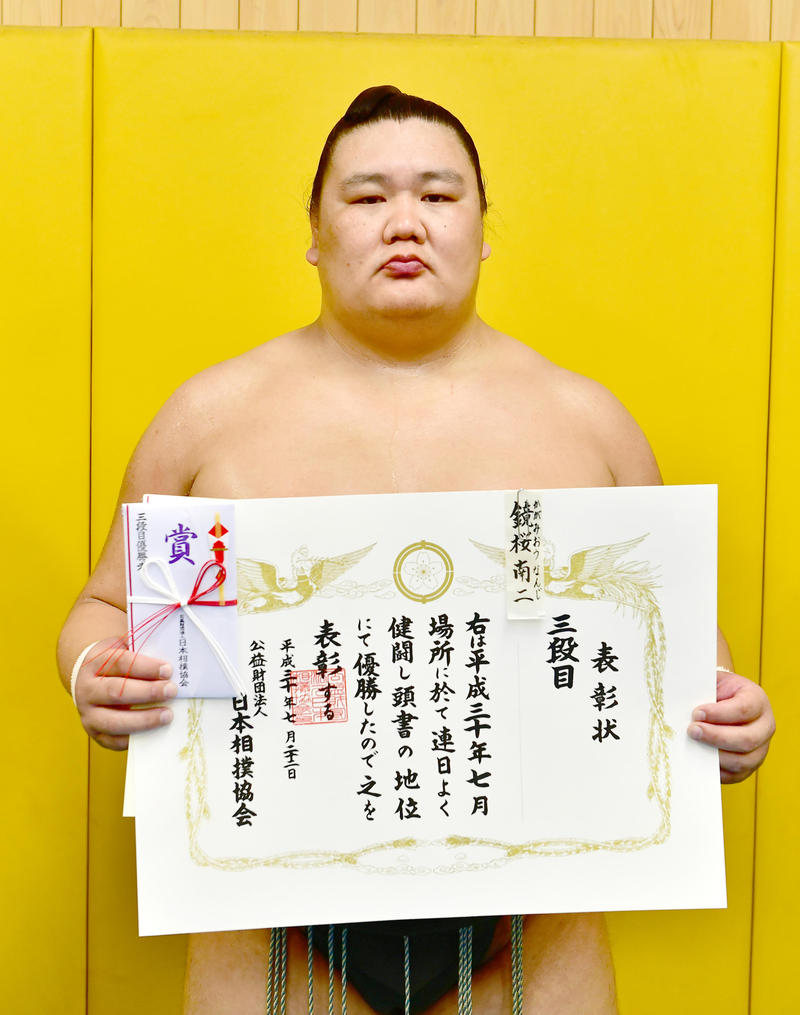 表彰状
三段目
かがみおう なんじ
鏡桜南二
右は平成三十年七月
場所に於て連日よく
健闘し頭書の地位
にて優勝したので之を
表彰する
平成三十年七月二十二日
公益財団法人
日本相撲協会
賞
三段目優勝
日本相撲協会